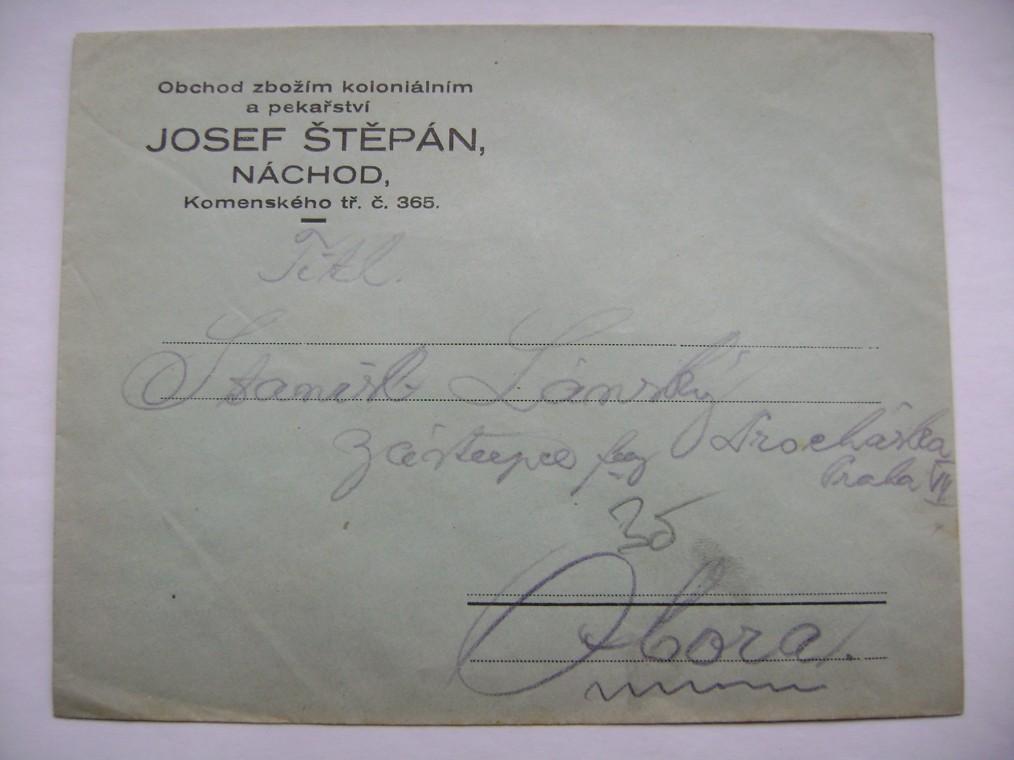 Obchod zbožím koloniálním
a pekařství
JOSEF ŠTĚPÁN,
NÁCHOD,
Komenského tř. č. 365.
Titl.
Stanisl. Lánský
zástupce fy Procházka
Praha VII
35
Obora.